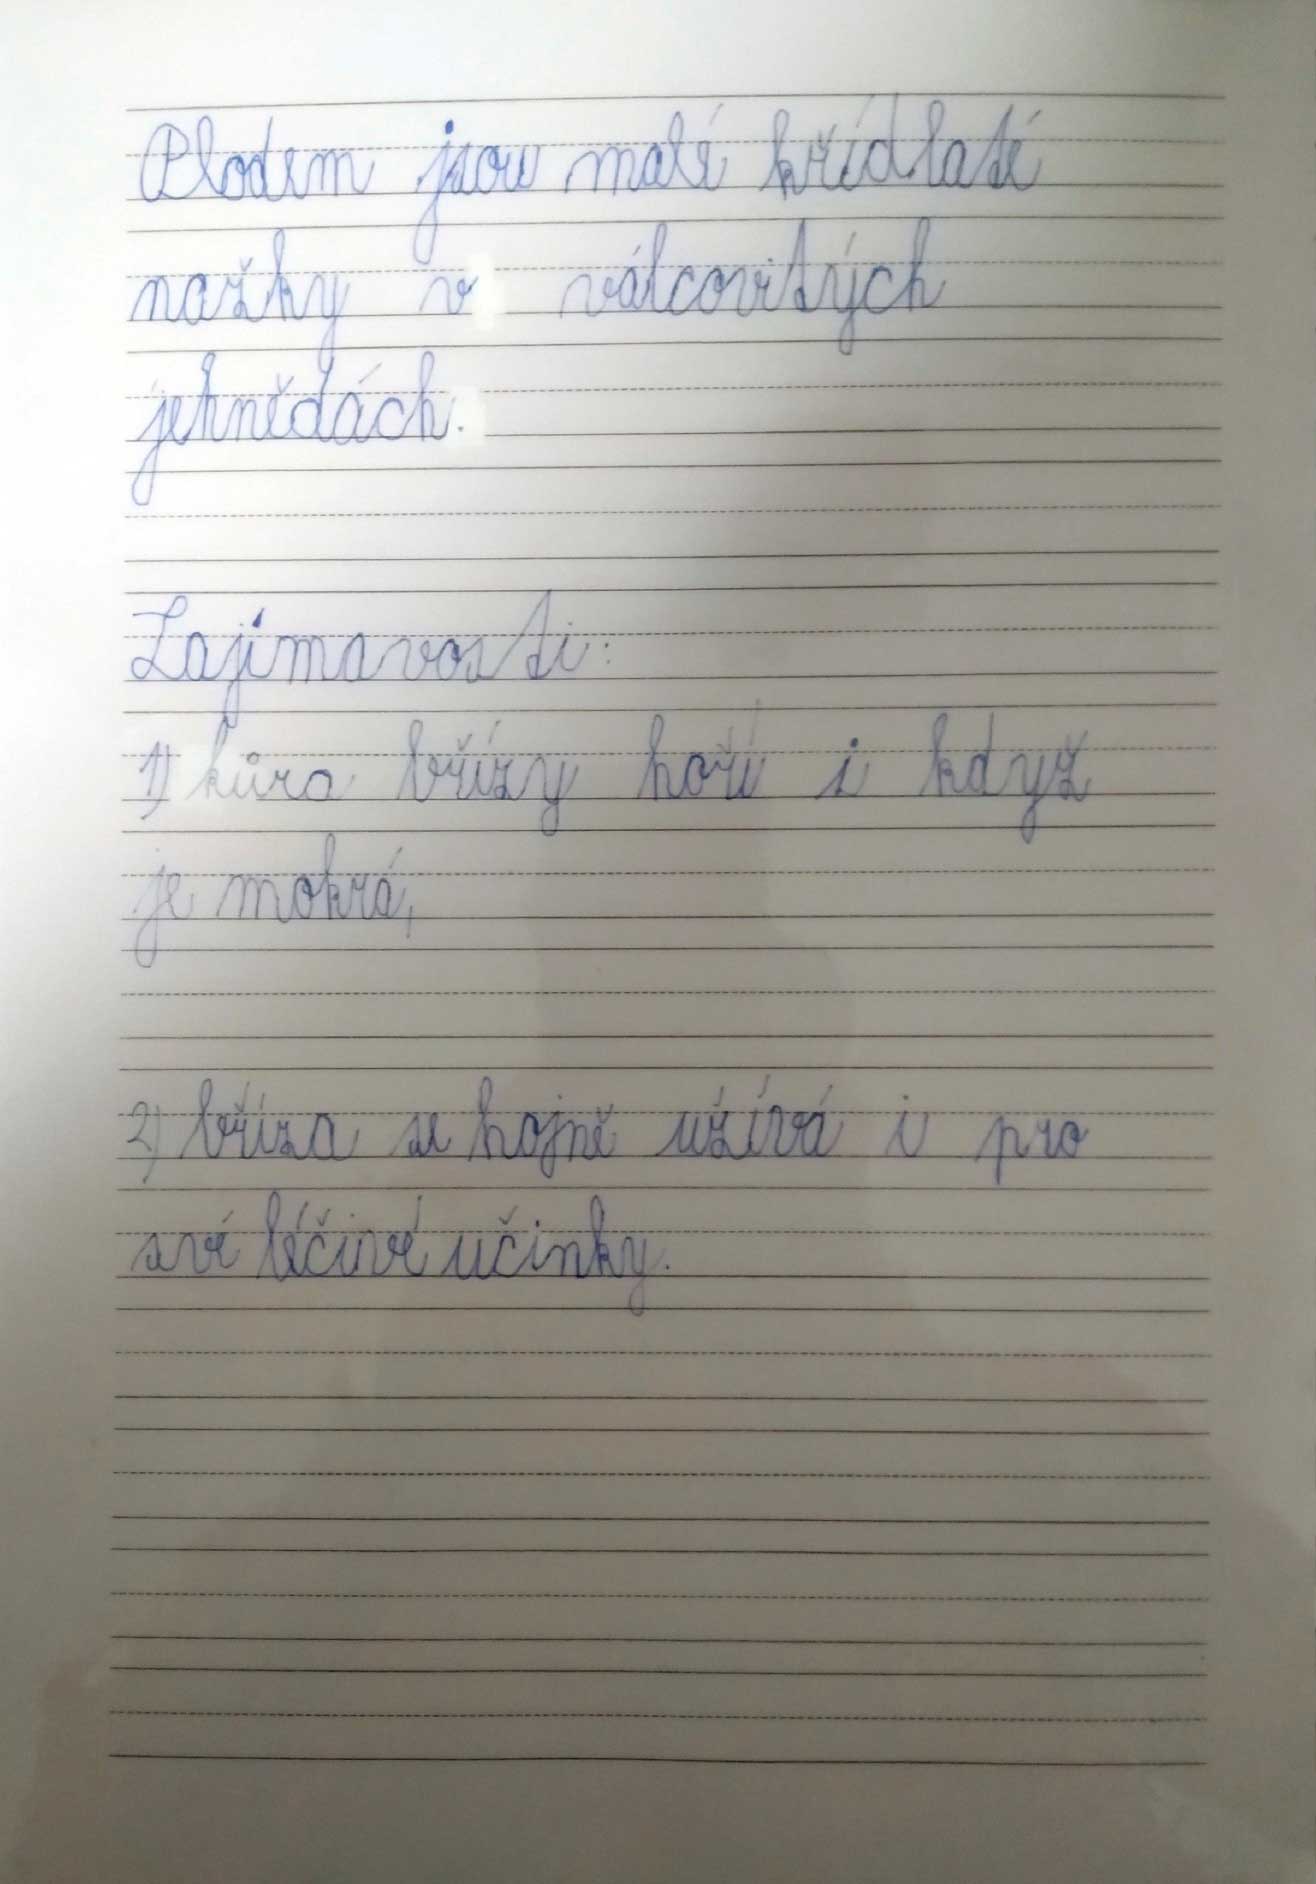 Plodem jsou malé křídlaté
nažky v válcovitých
jehnědách.
Zajímavosti:
1) kůra břízy hoří i když
je mokrá,
2) bříza se hojně užívá i pro
své léčivé učinky.